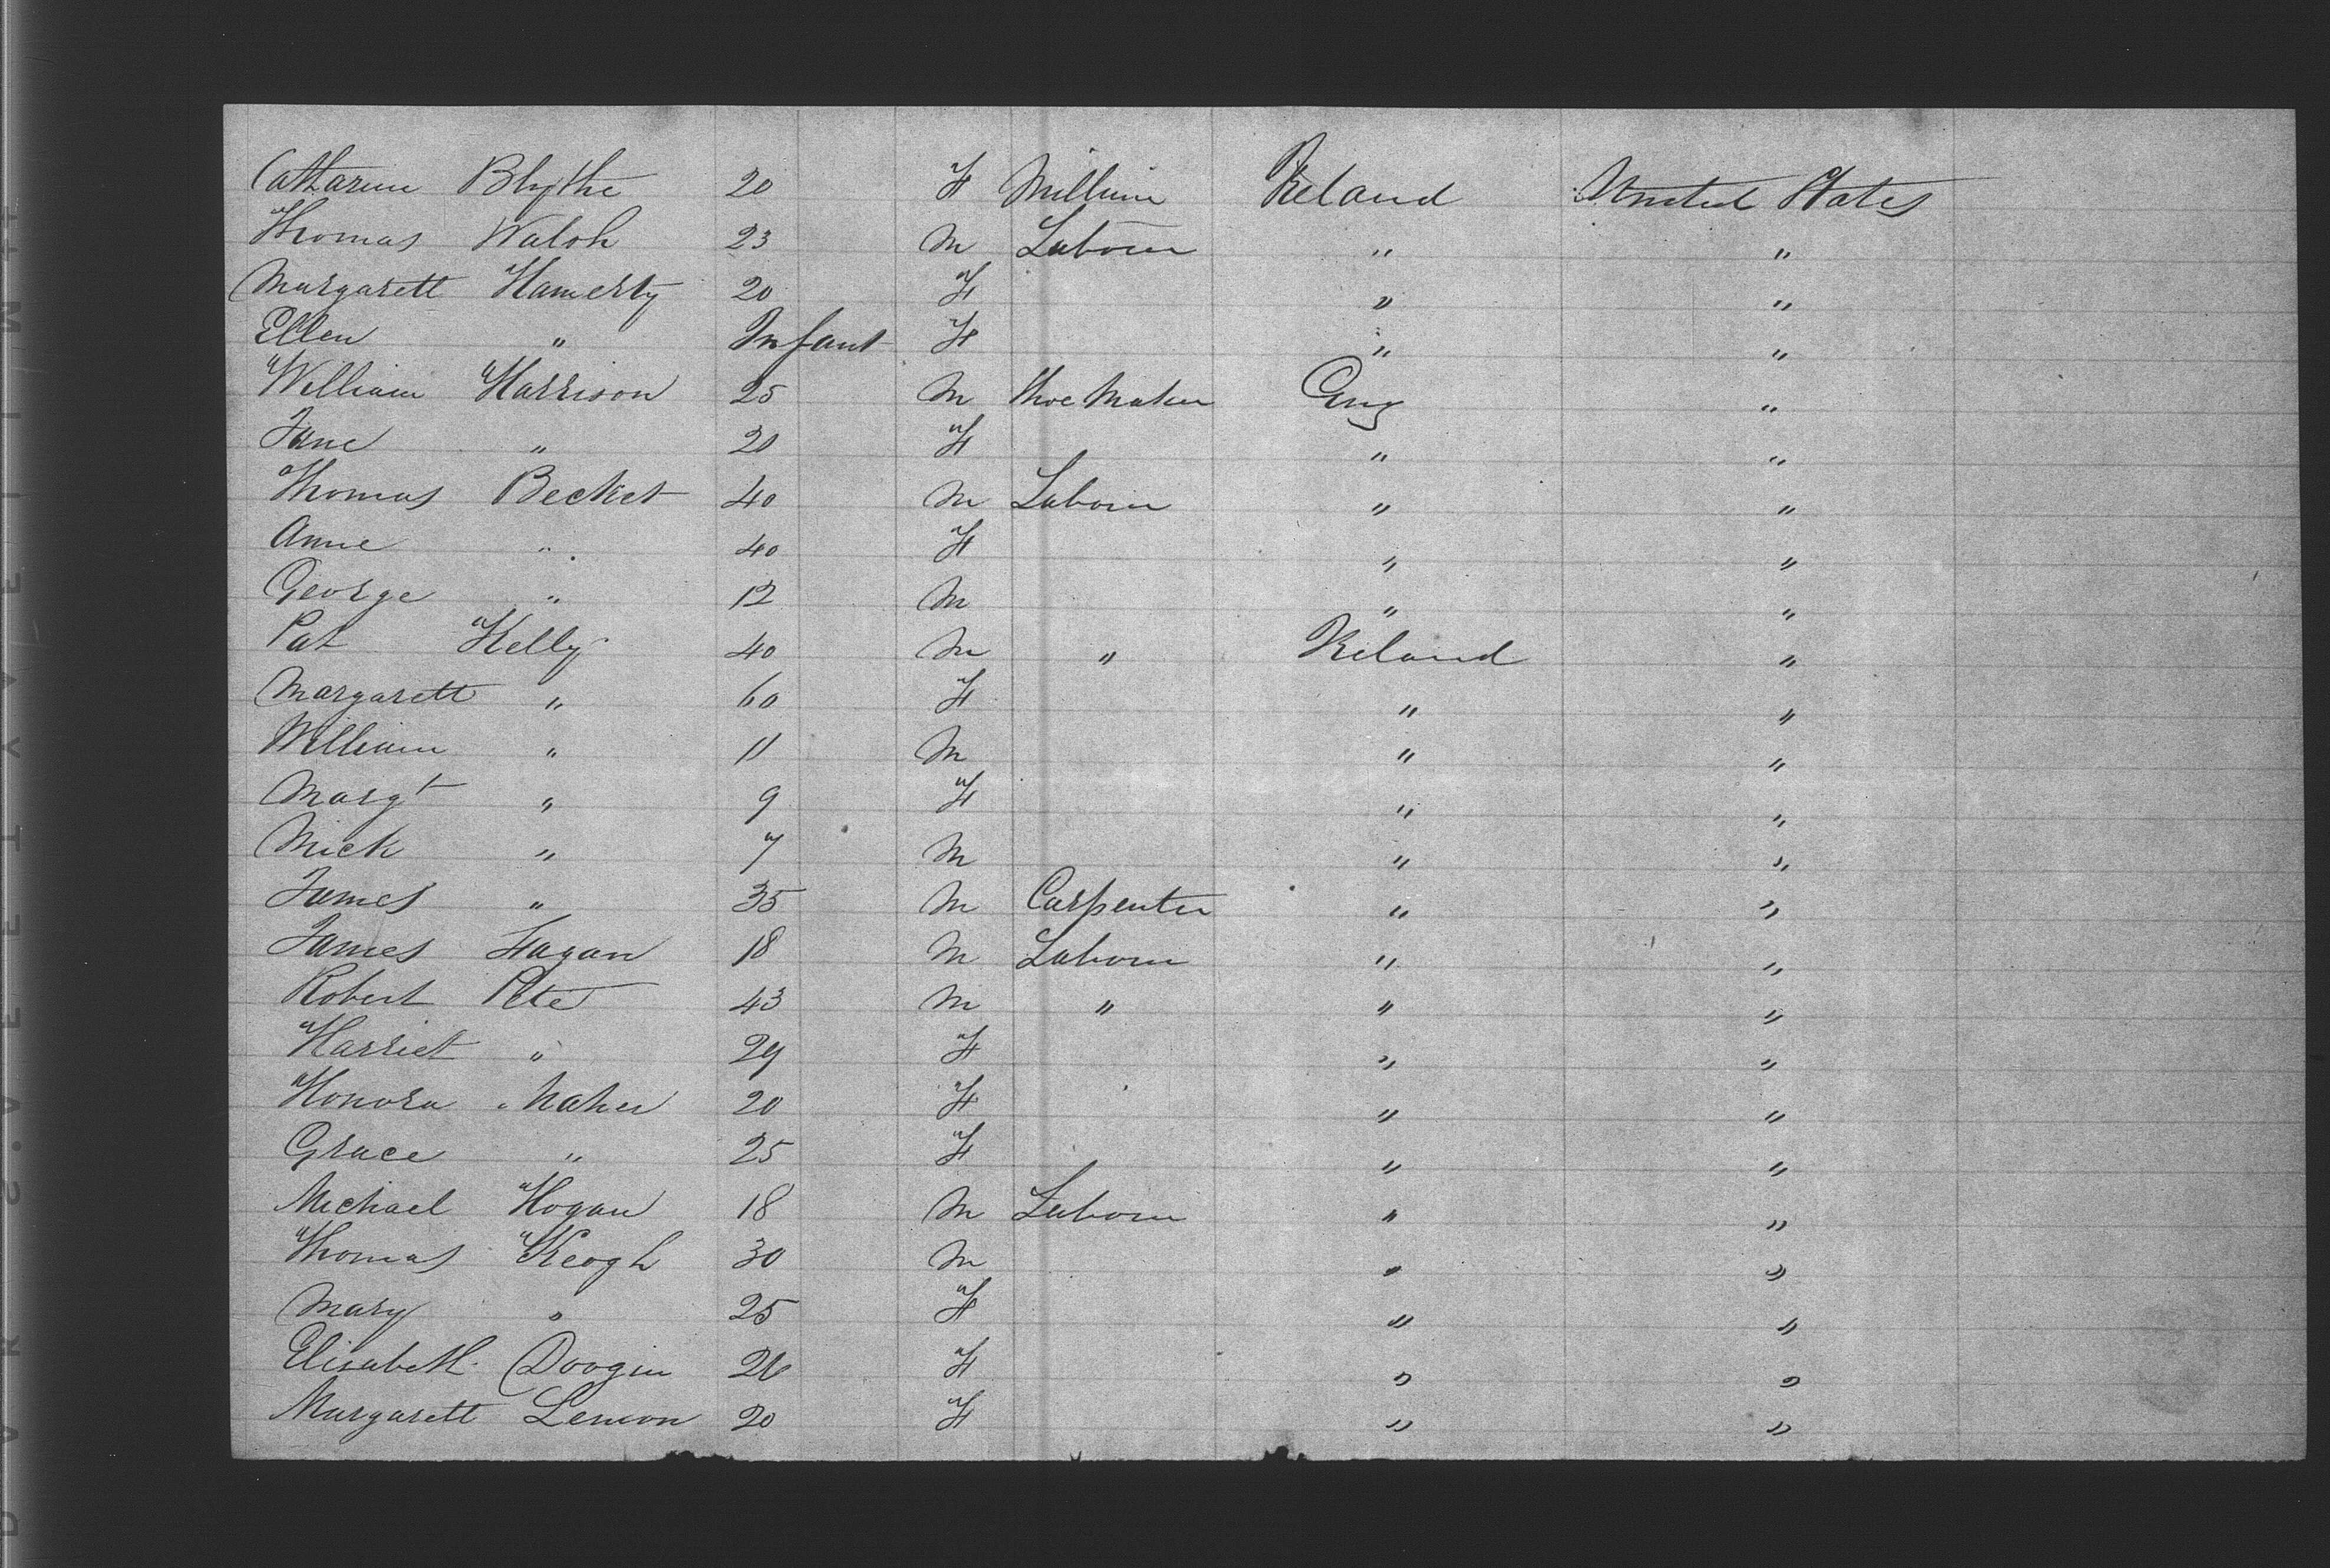 Catharine Blythe 20 F Milliner Ireland United States
Thomas Walsh 23 M Labourer " "
Margarett Hamerty 20 F " "
Ellen " Infant F " "
William Harrison 25 M Shoe Maker Eng "
Jane " 20 F " "
Thomas Becket 40 M Labourer " "
Anne " 40 F " "
George " 12 M " "
Pat Kelly 40 M " Ireland "
Margarett " 60 F " "
William " 11 M " "
Margt " 9 F " "
Mick " 7 M " "
James " 35 M Carpenter " "
James Fagan 18 M Labourer " "
Robert Pete 43 M " " "
Harriet " 29 F " "
Honora Maher 20 F " "
Grace " 25 F " "
Michael Hogan 18 M Labourer " "
Thomas Keogh 30 M " "
Mary " 25 F " "
Elisabeth 26 F " "
Margarett Lemon 20 F " "